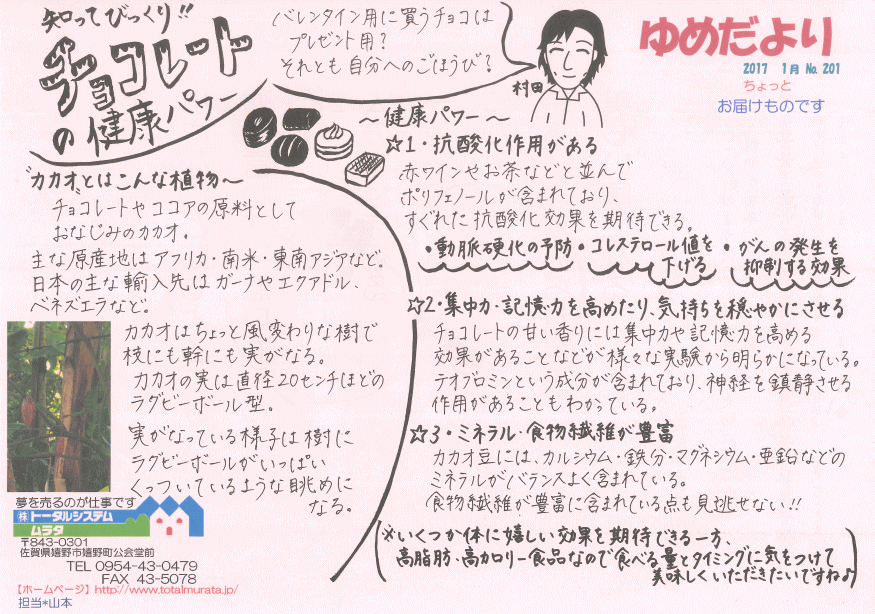 知ってびっくり!!
チョコレート
の健康パワー
バレンタイン用に買うチョコは
プレゼント用?
それとも自分へのごほうび?
村田
ゆめだより
2017 1月 No.201
ちょっと
お届けものです
"カカオ"とはこんな植物～
チョコレートやココアの原料として
おなじみのカカオ。
主な原産地はアフリカ・南米・東南アジアなど。
日本の主な輸入先はガーナやエクアドル、
ベネズエラなど。
カカオはちょっと風変わりな樹で
枝にも幹にも実がなる。
カカオの実は直径20センチほどの
ラグビーボール型。
実がなっている様子は樹に
ラグビーボールがいっぱい
くっついているような眺めに
なる。
～健康パワー～
☆1・抗酸化作用がある
赤ワインやお茶などと並んで
ポリフェノールが含まれており、
すぐれた抗酸化効果を期待できる。
・動脈硬化の予防・コレステロール値を
下げる
・がんの発生を
抑制する効果
☆2・集中力・記憶力を高めたり、気持ちを穏やかにさせる
チョコレートの甘い香りには集中力や記憶力を高める
効果があることなどが様々な実験から明らかになっている。
テオブロミンという成分が含まれており、神経を鎮静させる
作用があることもわかっている。
☆3・ミネラル・食物繊維が豊富
カカオ豆には、カルシウム・鉄分・マグネシウム・亜鉛などの
ミネラルがバランスよく含まれている。
食物繊維が豊富に含まれている点も見逃せない!!
※いくつか体に嬉しい効果を期待できる一方、
高脂肪・高カロリー食品なので食べる量とタイミングに気をつけて
美味しくいただきたいですね♪
夢を売るのが仕事です
㈱トータルシステム
ムラタ
〒843-0301
佐賀県嬉野市嬉野町公会堂前
TEL 0954-43-0479
FAX 43-5078
【ホームページ】http://www.totalmurata.jp/
担当*山本